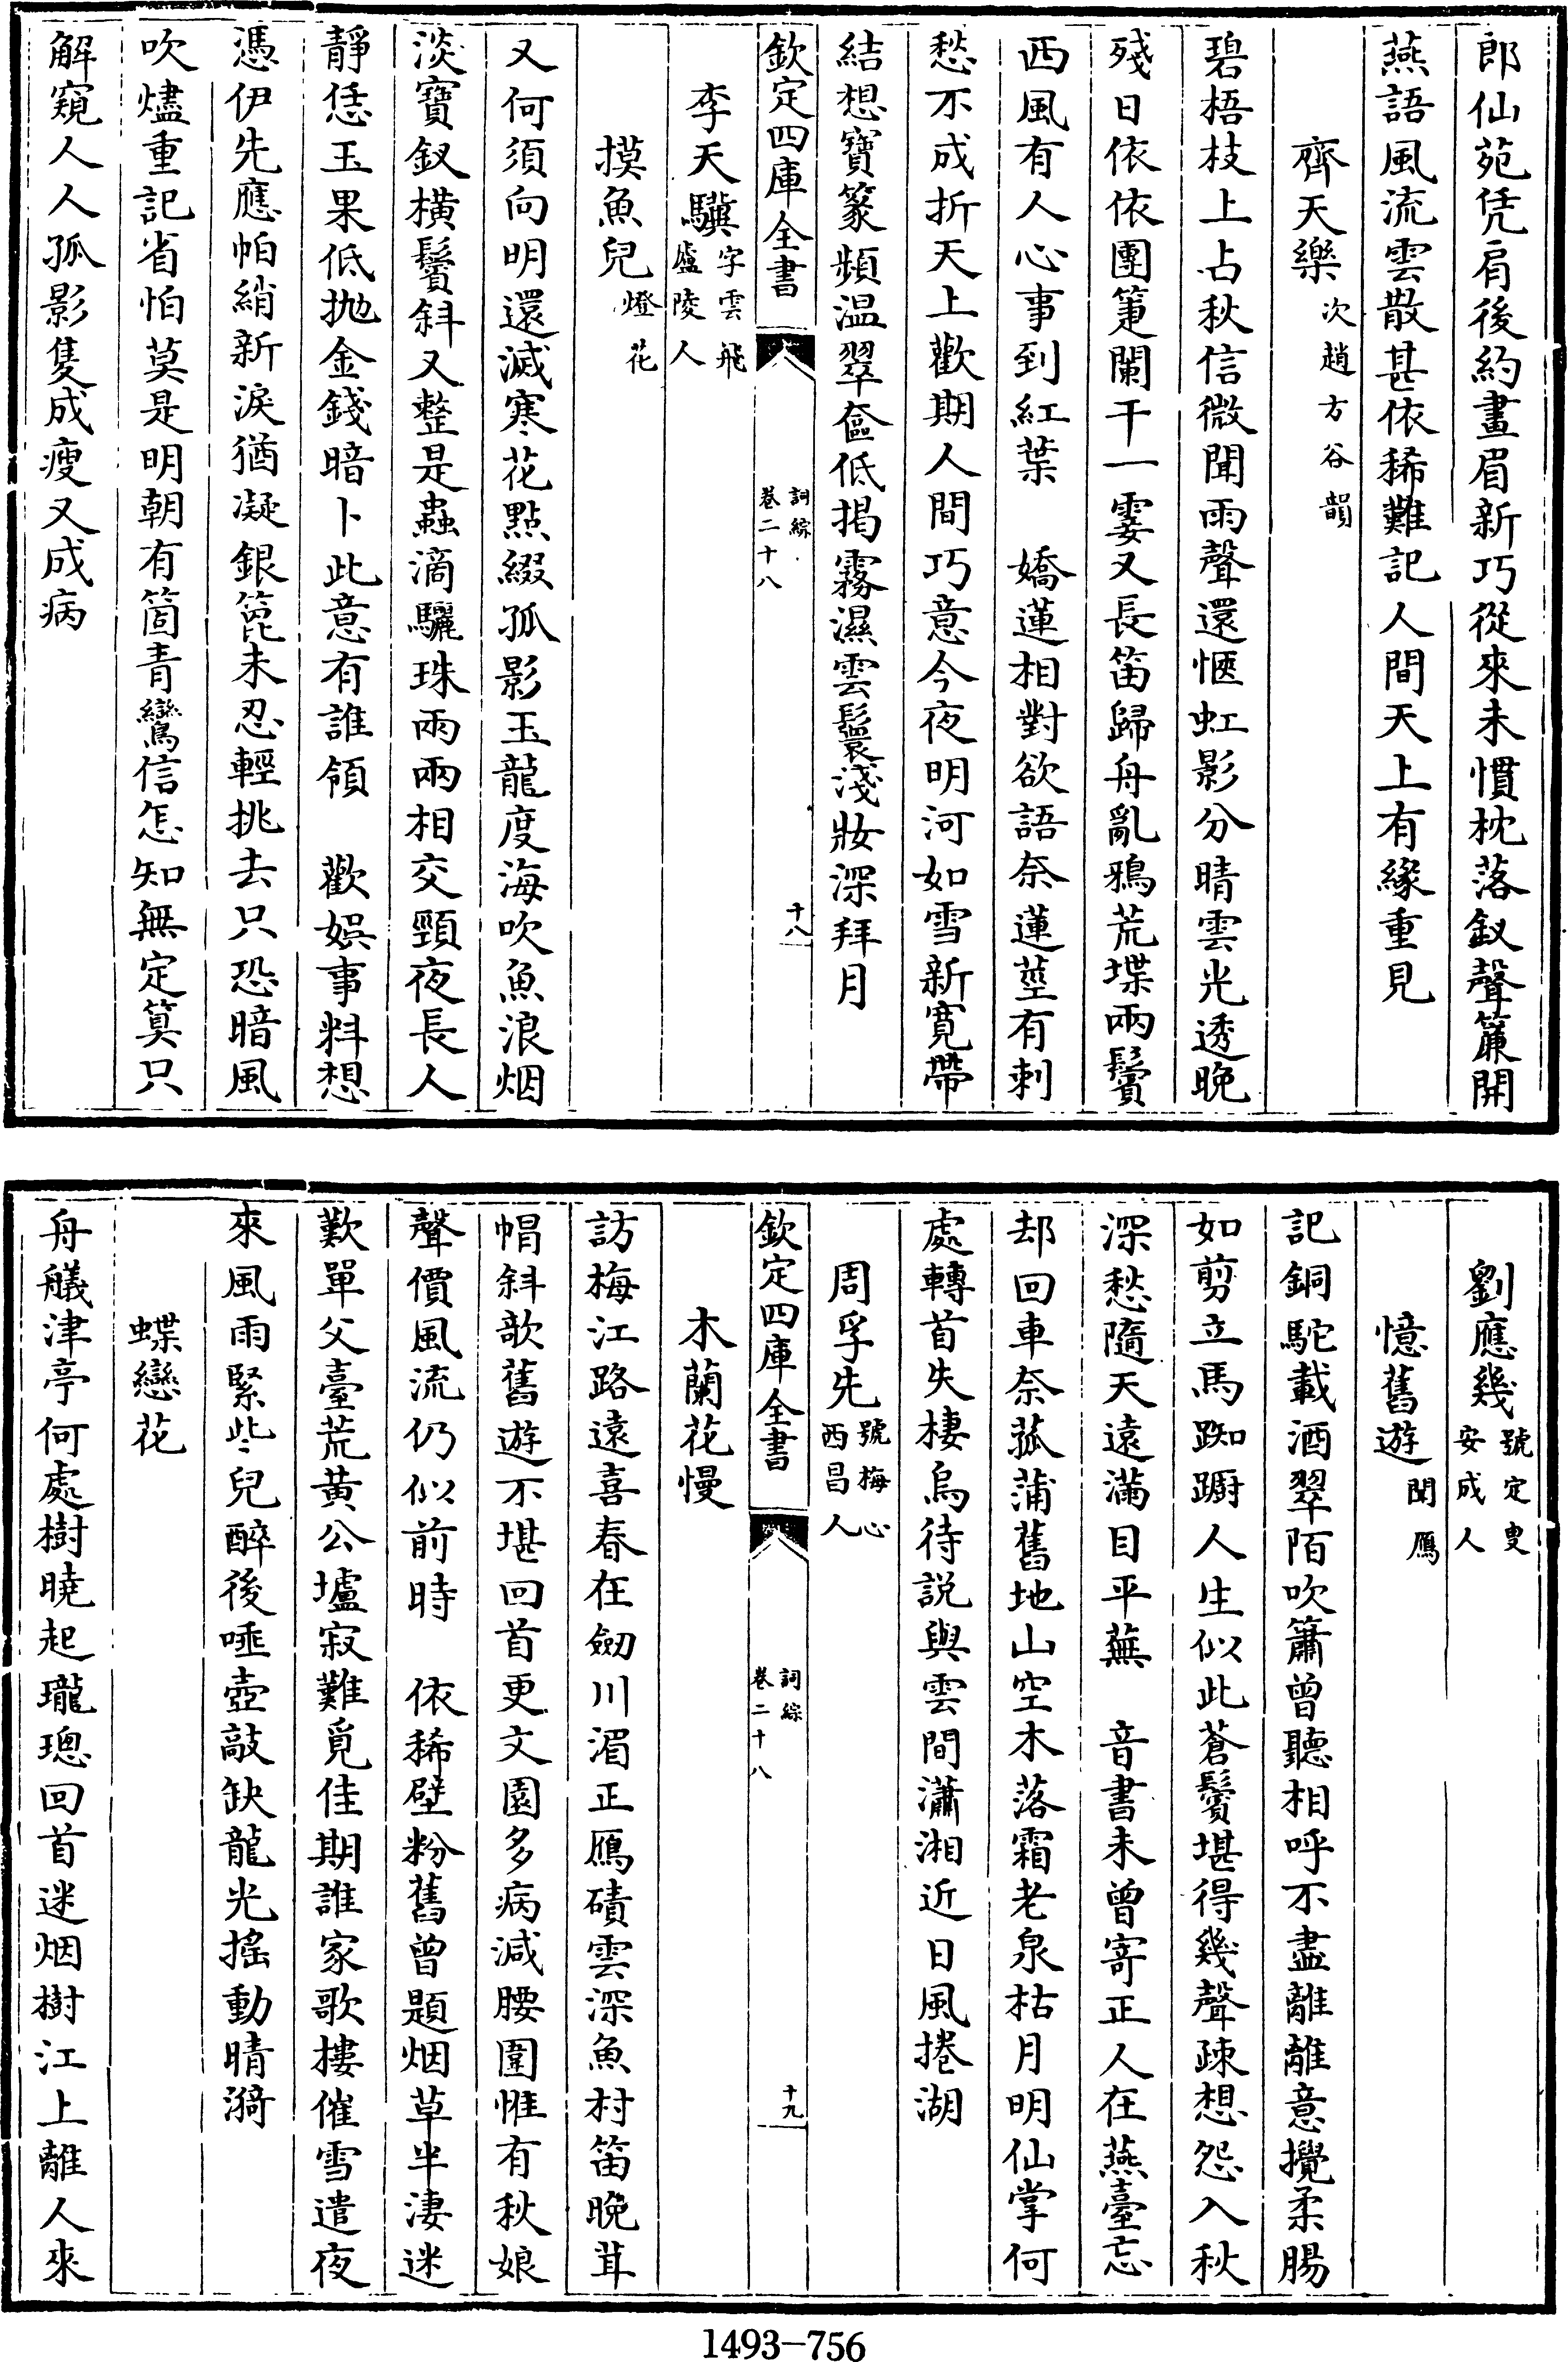 郎仙苑凭肩後約畫眉新巧從來未慣枕落釵聲簾開
燕語風流雲散甚依稀難記人間天上有緣重見
齊天樂次趙方谷韻
碧梧枝上占秋信微聞雨聲還愜虹影分晴雲光透晚
殘日依依團箑闌干一霎又長笛歸舟亂鴉荒堞兩鬢
西風有人心事到紅葉　嬌蓮相對欲語奈蓮莖有刺
愁不成折天上歡期人間巧意今夜明河如雪新寬帶
結想寶篆頻温翠奩低揭霧濕雲鬟淺妝深拜月
欽定四庫全書
詞綜
卷二十八
十八
李天驥字雲飛
廬陵人
摸魚兒燈花
又何須向明還滅寒花點綴孤影玉龍度海吹魚浪烟
淡寶釵橫鬢斜又整是蟲滴驪珠兩兩相交頸夜長人
靜恁玉果低拋金錢暗卜此意有誰領　歡娛事料想
憑伊先應帕綃新淚猶凝銀篦未忍輕挑去只恐暗風
吹燼重記省怕莫是明朝有箇青鸞信怎知無定算只
解窺人人孤影隻成瘦又成病
劉應幾號定叟
安成人
憶舊遊聞鴈
記銅駝載酒翠陌吹簫曾聽相呼不盡離離意攪柔腸
如剪立馬踟躕人生似此蒼鬢堪得幾聲疎想怨入秋
深愁隨天遠滿目平蕪　音書未曾寄正人在燕臺忘
却回車奈菰蒲舊地山空木落霜老泉枯月明仙掌何
處轉首失棲烏待説與雲間瀟湘近日風捲湖
周孚先號梅心
西昌人
欽定四庫全書
詞綜
卷二十八
十九
木蘭花慢
訪梅江路遠喜春在劒川湄正鴈磧雲深魚村笛晚茸
帽斜欹舊遊不堪回首更文園多病減腰圍惟有秋娘
聲價風流仍似前時　依稀壁粉舊曾題烟草半淒迷
歎單父臺荒黄公壚寂難覓佳期誰家歌摟催雪遣夜
來風雨緊些兒醉後唾壺敲缺龍光搖動晴漪
蝶戀花
舟艤津亭何處樹曉起瓏璁回首迷烟樹江上離人來
1493-756